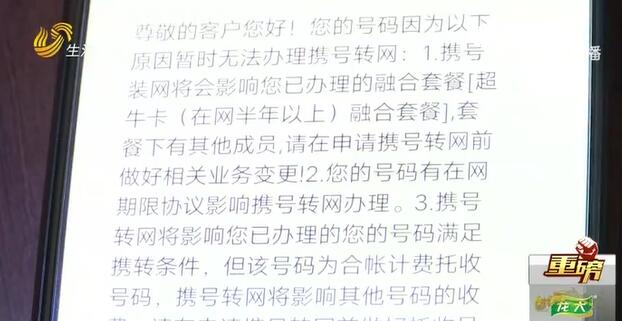 尊敬的客户您好！您的号码因为以下
原因暂时无法办理携号转网：1.携号
装网将会影响您已办理的融合套餐[超
牛卡（在网半年以上）融合套餐],套
餐下有其他成员,请在申请携号转网前
做好相关业务变更!2.您的号码有在网
期限协议影响携号转网办理。3.携号
转网将影响您已办理的您的号码满足
携转条件，但该号码为合帐计费托收
号码，携号转网将影响其他号码的收
费，请在申请携号转网前做好托收号
生
播
重磅
花大